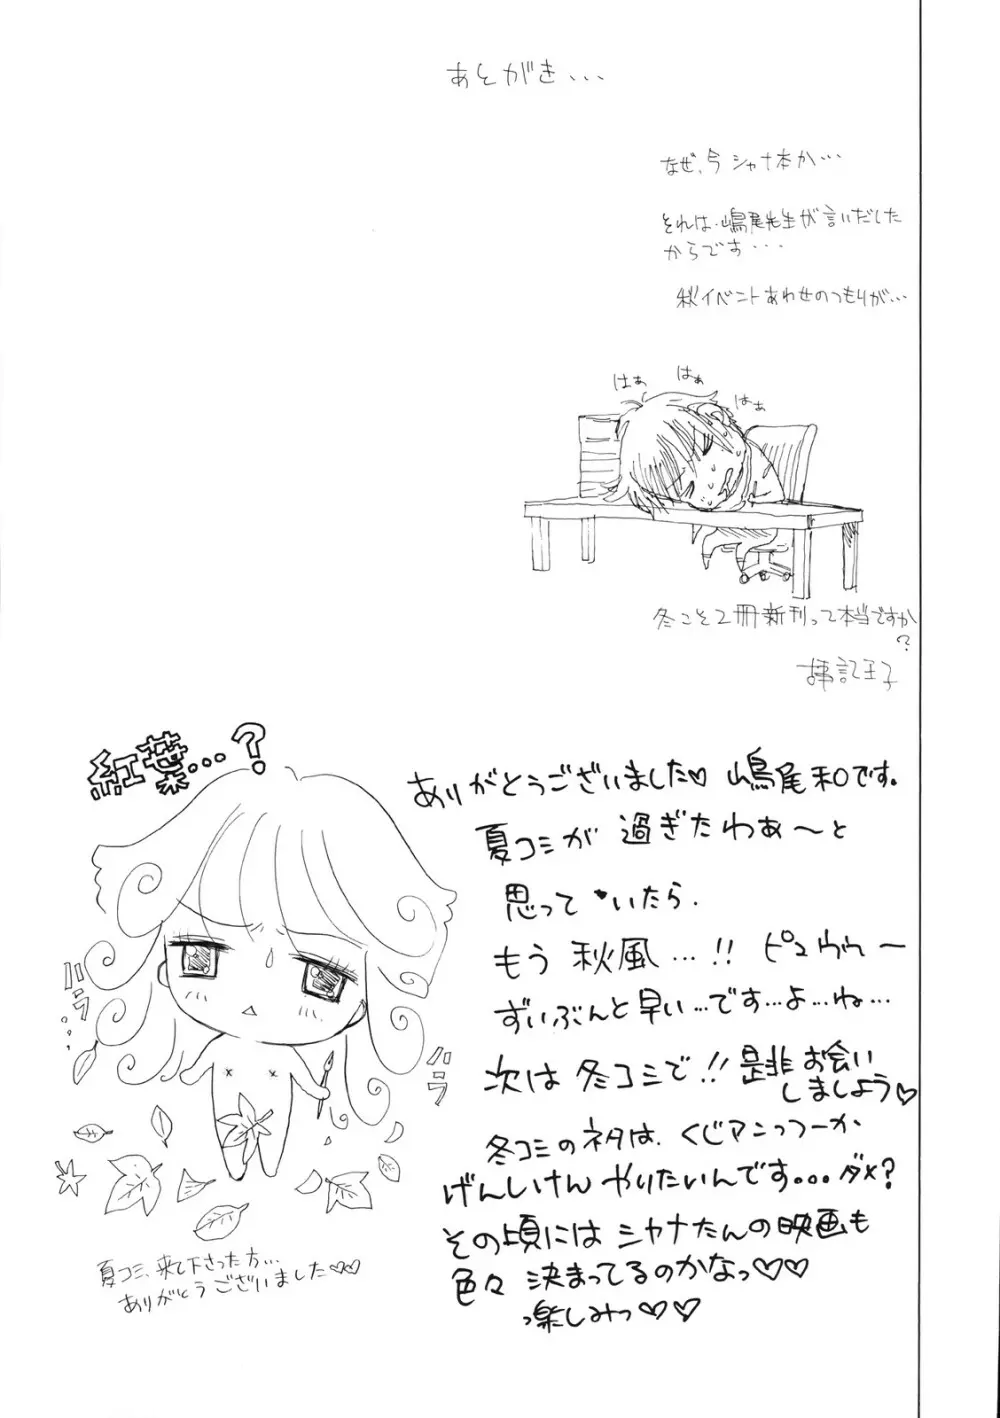 あとがき・・・
なぜ、今シャナ本か・・・
それは・嶋尾先生が言いだした
からです・・・
秋イベントあわせのつもりが・・・
はぁ
はぁ
はぁ
冬こそ2冊新刊って本当ですか
?
王子
紅葉…?
ありがとうございました♡ 嶋尾和です。
夏コミが 過ぎたわあ〜と
思って いたら、
もう 秋風…!! ピュウゥー
ずいぶんと早い…です…よ…ね…
次は 冬コミで!! 是非お会い
しましょう♡
冬コミのネタは、くじアンっつーか
げんしけん やりたいんです… ダメ?
その頃には シャナたんの映画も
色々 決まってるのかなっ♡♡
っ楽しみっ♡♡
ハラ…
ハラ
夏コミ、来て下さった方…
ありがとうございました♡♡